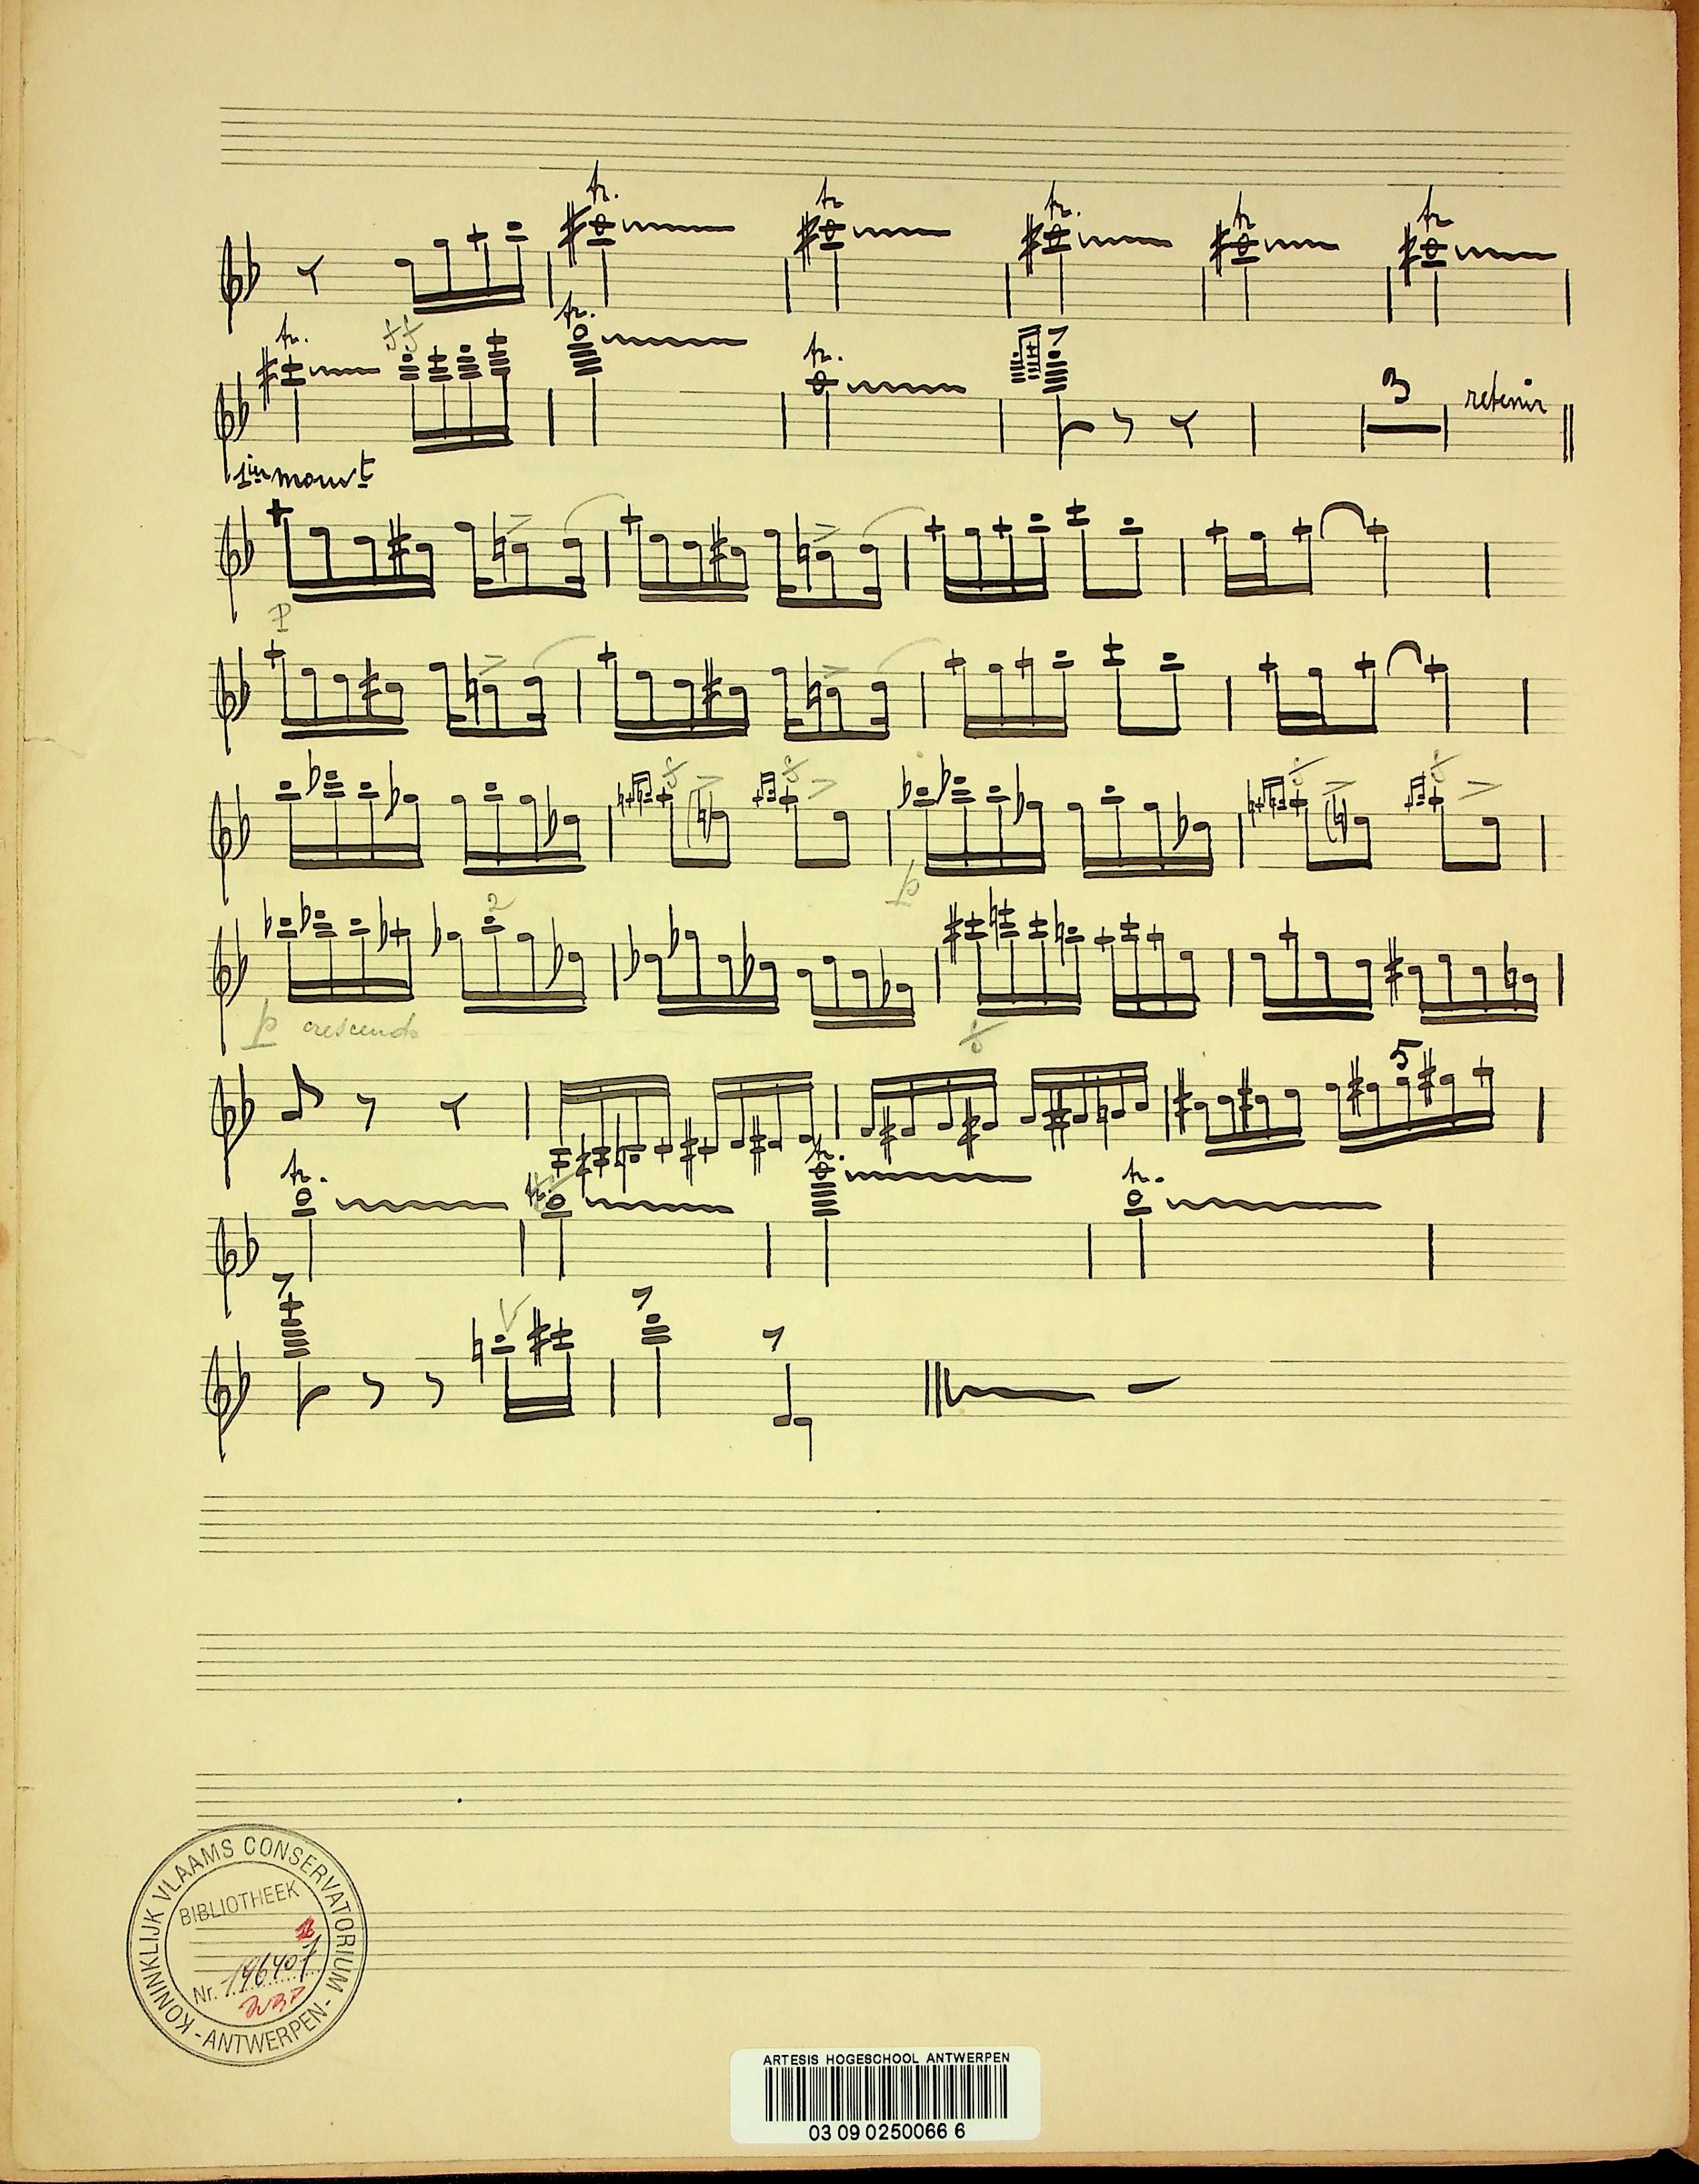 tr. tr tr. tr tr
tr. ff tr. tr. 3 retenir
1er mouvt
p
f f f f
p
2
p crescendo f
5
tr. tr. tr. tr.
KONINKLIJK VLAAMS CONSERVATORIUM - ANTWERPEN -
BIBLIOTHEEK
Nr. 196407
ARTESIS HOGESCHOOL ANTWERPEN
03 09 0250066 6